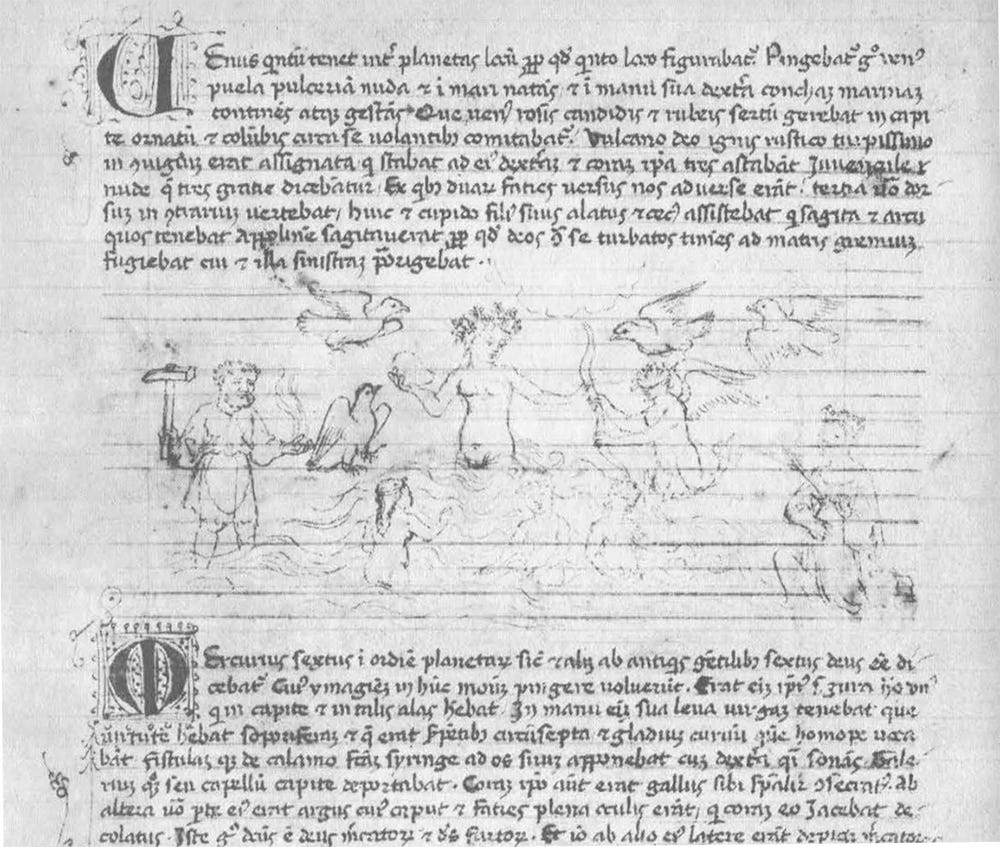 VEnus quintū tenet int̄ planetas locū ꝓp qd̄ quinto loco figurabat᷑. Pingebat᷑ gͦ venꝰ
puela pulcerīa nuda ⁊ ī mari natas, ⁊ ī manu sua dextra conchaȝ marinaȝ
continēs atqȝ gestās Que venꝰ rosis candidis ⁊ rubeis sertū gerebat in capi
te ornatū ⁊ colūbis circa se volantibꝰ comitabat᷑. Vulcano deo ignis rustico turpissimo
in ꝯiugiuȝ erat assignata q stabat ad eiꝰ dextraȝ ⁊ coraȝ ip̄a tres astabāt Juvencule
nude q̄ tres gratie dicebātur. Ex qbꝰ duaꝝ faties versus nos adverse erāt. tertia v̄o dor
suȝ in ꝯtrariuȝ vertebat, huic ⁊ cupido filiꝰ suus alatus ⁊ cecꝰ assistebat q sagita ⁊ arcu
quos tenebat Appoline sagitaverat ꝓp qd̄ deos ꝯ̄ se turbatos timēs ad matris gremiuȝ
fugiebat cui ⁊ illa sinistraȝ porigebat.
MErcurius sextus ī ordīe planetaꝝ sic̄ ⁊ aliȝ ab antiqs gētilibꝰ sextus deus eē di
cebat᷑. Cuiꝰ ymagiēȝ in hūc modū pingere voluerūt. Erat eiȝ
q in capite ⁊ in talis alas h̄ebat. In manu eiȝ sua leva virgaȝ tenebat que
h̄ebat soporiferaȝ ⁊ q̄ erat ſp̄ētibꝰ circūsepta ⁊ gladius curvū quē homope voca
bāt fistulaȝ qȝ de calamo fctāȝ syringe ad os suuȝ apponebat cuȝ dextra qi sonās. Gale
ruȝ qȝ seu capellū capite deportabat. Coraȝ ip̄o aūt erat gallus sibi sp̄alir ꝯsecratꝰ. Ab
altera v̄o pte eiꝰ erat argus cuiꝰ caput ⁊ faties plena oculis erāt, q coraȝ eo Jacebat de
colatus. Iste gͦ deus ē deus mcatoꝝ ⁊ d̄s furtoꝝ. Et iō ab alio eiꝰ latere erāt